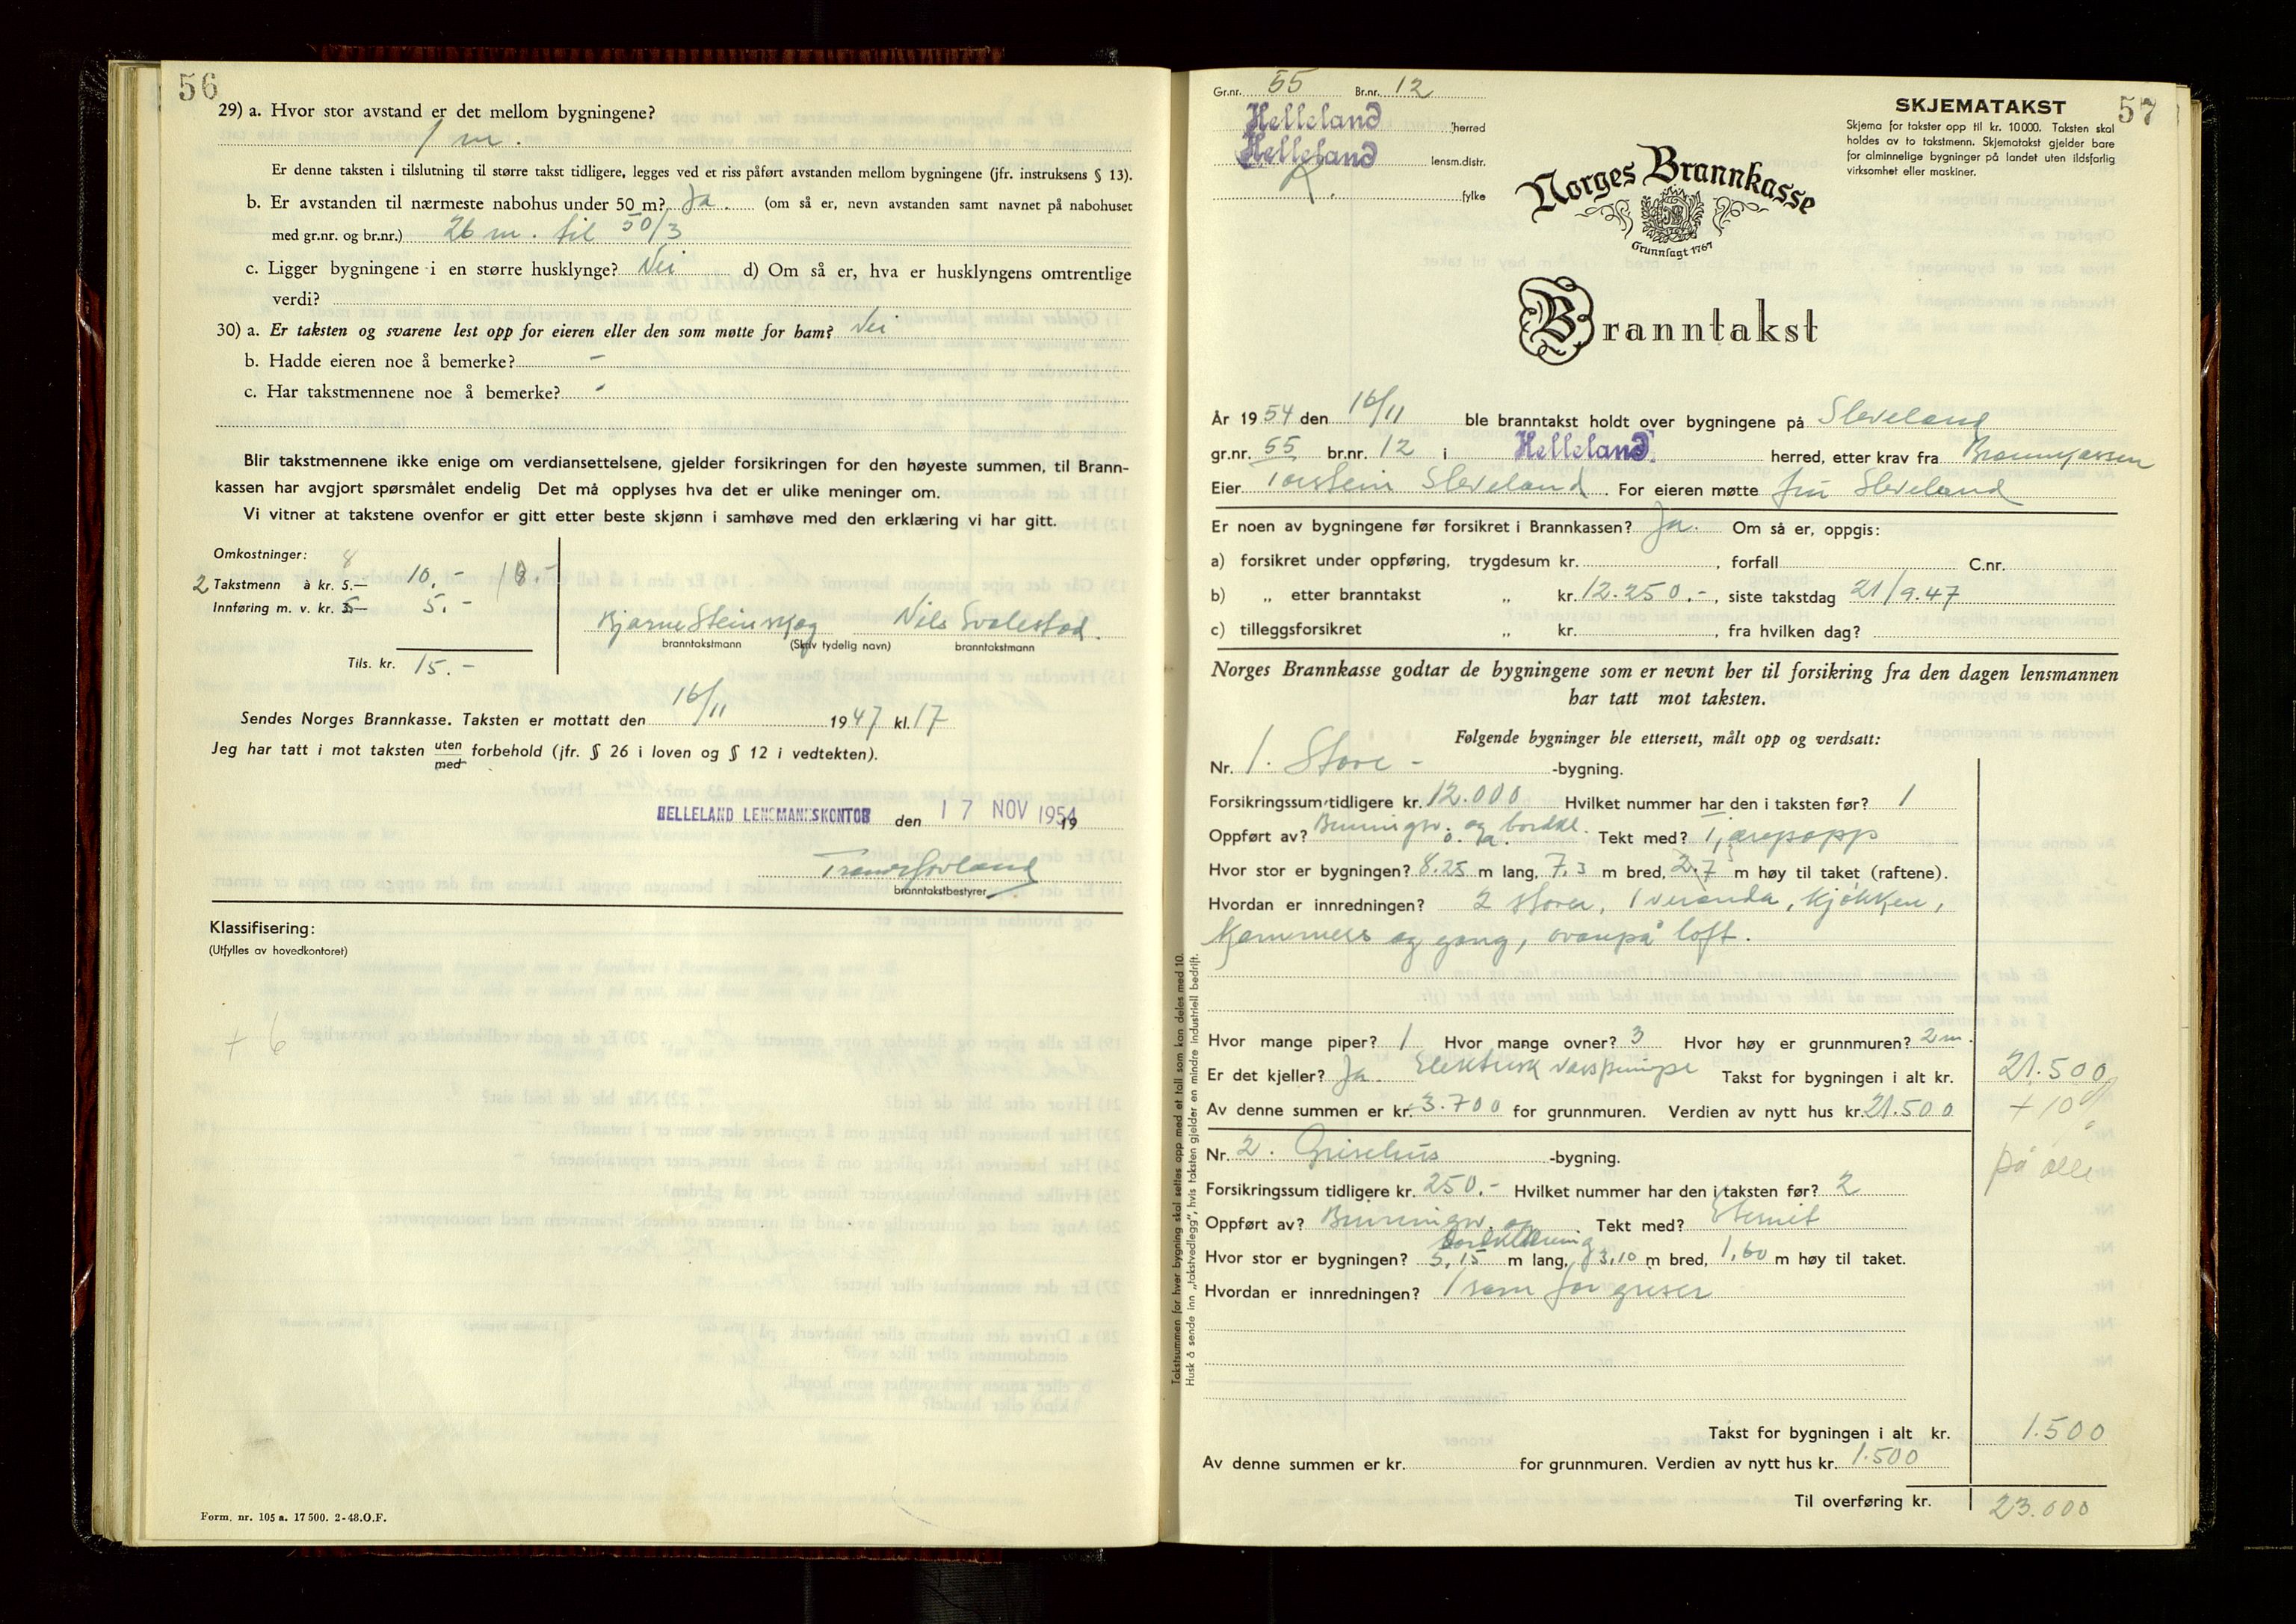 56
29) a. Hvor stor avstand er det mellom bygningene?
1 m.
Er denne taksten i tilslutning til større takst tidligere, legges ved et riss påført avstanden mellom bygningene (jfr. instruksens § 13).
b. Er avstanden til nærmeste nabohus under 50 m? Ja. (om så er, nevn avstanden samt navnet på nabohuset
med gr.nr. og br.nr.) 26 m. til 50/3
c. Ligger bygningene i en større husklynge? Nei d) Om så er, hva er husklyngens omtrentlige
verdi?
30) a. Er taksten og svarene lest opp for eieren eller den som møtte for ham? Nei
b. Hadde eieren noe å bemerke? -
c. Har takstmennene noe å bemerke? -
Blir takstmennene ikke enige om verdiansettelsene, gjelder forsikringen for den høyeste summen, til Brann-
kassen har avgjort spørsmålet endelig Det må opplyses hva det er ulike meninger om.
Vi vitner at takstene ovenfor er gitt etter beste skjønn i samhøve med den erklæring vi har gitt.
Omkostninger: 8
2 Takstmenn à kr. 5.— 10.- 18.-
Innføring m. v. kr. 5— 5.-
Bjarne Steinskog Nils Svalestad.
branntakstmann (Skriv tydelig navn) branntakstmann
Tils. kr. 15.-
Sendes Norges Brannkasse. Taksten er mottatt den 16/11 1947 kl. 17
Jeg har tatt i mot taksten uten forbehold (jfr. § 26 i loven og § 12 i vedtekten).
med
HELLELAND LENSMANNSKONTOR den 17 NOV 1954 19
branntakstbestyrer
Klassifisering:
(Utfylles av hovedkontoret)
+ 6
Form. nr. 105 a. 17 500. 2-48.O.F.
57
Gr.nr. 55 Br.nr. 12
Helleland herred
Helleland lensm.distr.
R. fylke
SKJEMATAKST
Skjema for takster opp til kr. 10000. Taksten skal
holdes av to takstmenn. Skjematakst gjelder bare
for alminnelige bygninger på landet uten ildsfarlig
virksomhet eller maskiner.
Norges Brannkasse
Grunnlagt 1767
Branntakst
År 1954 den 16/11 ble branntakst holdt over bygningene på Sleveland
gr.nr. 55 br.nr. 12 i Helleland herred, etter krav fra Brannkassen
Eier Torstein Sleveland. For eieren møtte fru Sleveland
Er noen av bygningene før forsikret i Brannkassen? Ja. Om så er, oppgis:
a) forsikret under oppføring, trygdesum kr. , forfall C.nr.
b) „ etter branntakst „ kr. 12.250.-, siste takstdag 21/9.47
c) tilleggsforsikret „ kr. , fra hvilken dag?
Norges Brannkasse godtar de bygningene som er nevnt her til forsikring fra den dagen lensmannen
har tatt mot taksten.
Følgende bygninger ble ettersett, målt opp og verdsatt:
Nr. 1. Stove- -bygning.
Forsikringssum tidligere kr. 12.000 Hvilket nummer har den i taksten før? 1
Oppført av? og bordkl. Tekt med?
Hvor stor er bygningen? 8.25 m lang, 7,3 m bred, 2.7 m høy til taket (raftene).
Hvordan er innredningen? 2 stover, 1 veranda, kjøkken,
kammers og gang, ovanpå loft.
Hvor mange piper? 1 Hvor mange ovner? 3 Hvor høy er grunnmuren? 2 m.
Er det kjeller? Ja. Elektrisk vasspumpe Takst for bygningen i alt kr. 21.500
Av denne summen er kr. 3.700 for grunnmuren. Verdien av nytt hus kr. 21.500
+ 10
på alle
Nr. 2. Grisehus -bygning.
Forsikringssum tidligere kr. 250.- Hvilket nummer har den i taksten før? 2
Oppført av? Binningsv. og Tekt med? Eternit
bordkledning
Hvor stor er bygningen? 5,15 m lang, 3,10 m bred, 1,60 m høy til taket.
Hvordan er innredningen? 1 rom for griser
Takst for bygningen i alt kr. 1.500
Av denne summen er kr. for grunnmuren. Verdien av nytt hus kr. 1.500
Til overføring kr. 23.000
Takstsummen for hver bygning skal settes opp med et tall som kan deles med 10.
Husk å sende inn „takstvedlegg", hvis taksten gjelder en mindre industriell bedrift.